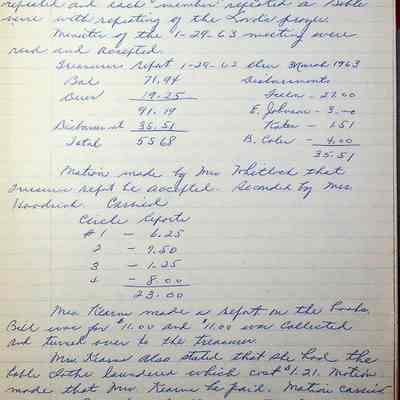 repeated and each member repeated a Bible
verse with repeating of the Lord's prayer.
Minutes of the 1-29-63 meeting were
read and accepted.
Treasurers report 1-29-63 thru March 1963
Bal 71,94 Disbursements
19.25 - 27.00
91.19 E. Johnson - 3.00
Disbursment 35.51 - 1.51
Total 55 68 B. Coler - 4.00
35.51
Motion made by Mrs Whitlock that
Treasurers report be accepted. Seconded by Mrs.
Woodrick. Carried
Circle reports
#1 - 6.25
2 - 7.50
3 - 1.25
4 - 8.00
23.00
Mrs. Kearns made a report on the books.
Bill was for $11.00 and $11.00 was collected
and turned over to the Treasurer.
Mrs. Kearns also stated that she had the
table cloths laundered which cost $1.21. Motion
made that Mrs. Kearns be paid. Motion carried